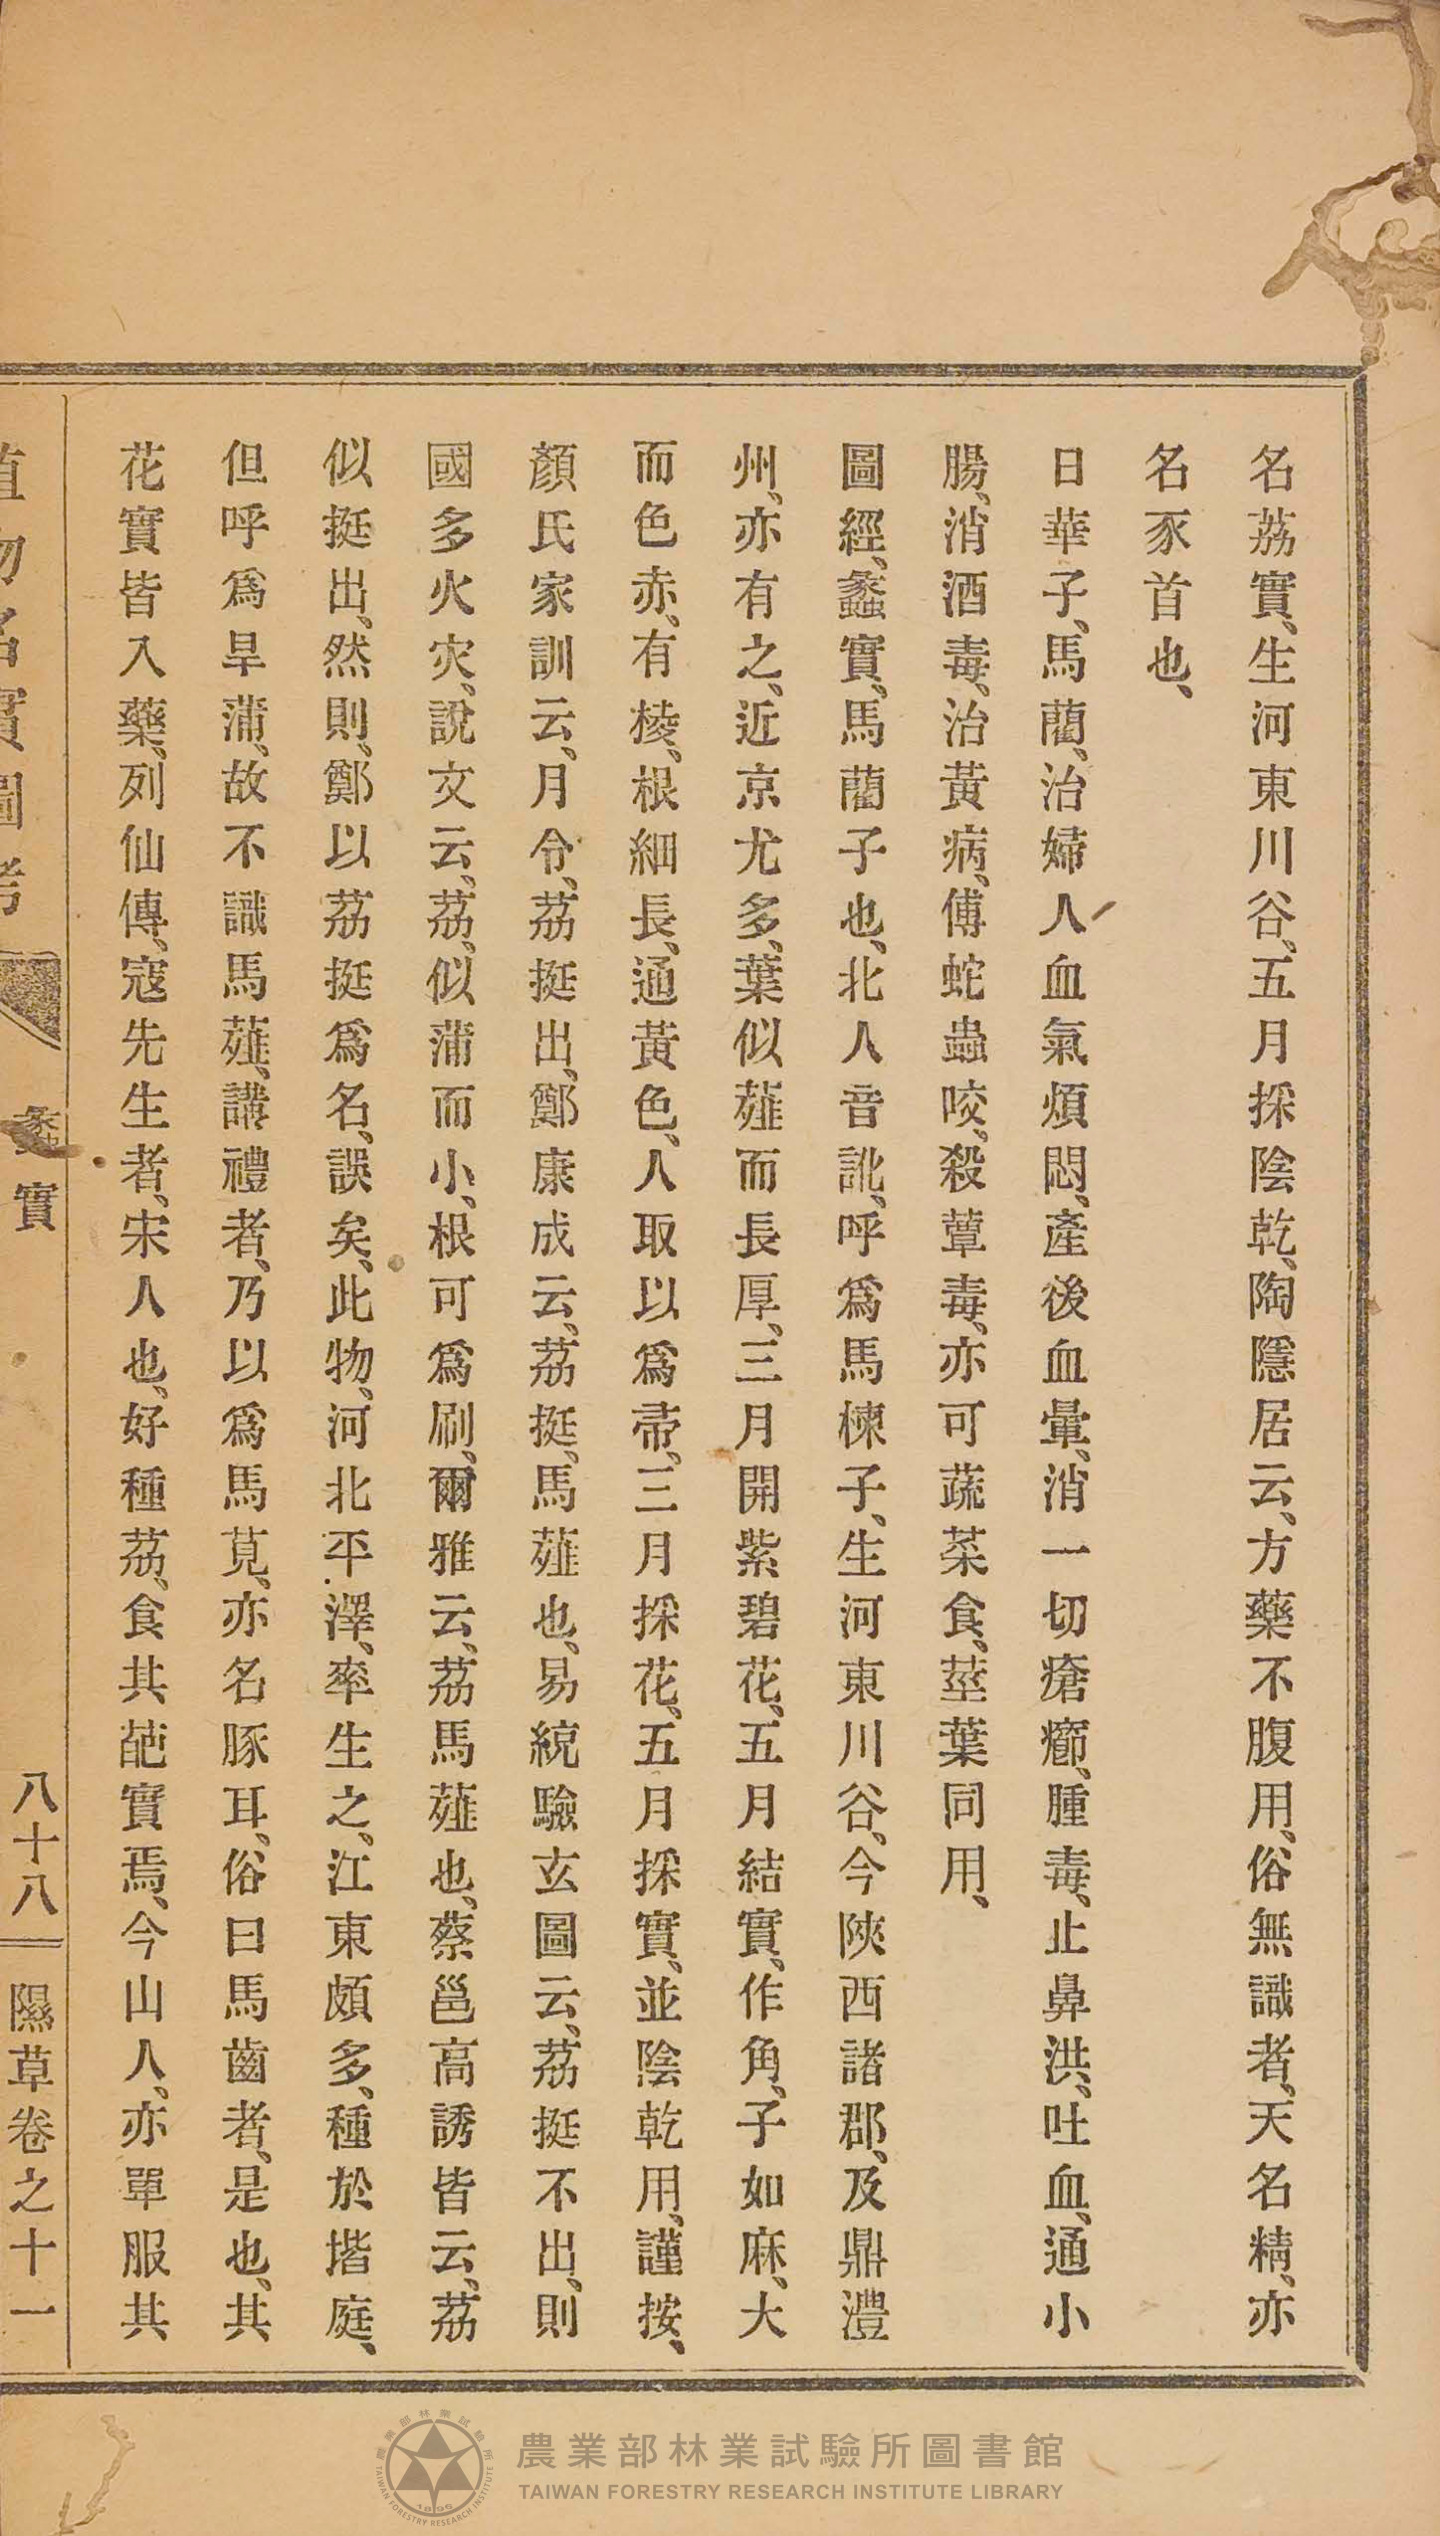 名荔實、生河東川谷、五月採陰乾、陶隱居云、方藥不腹用、俗無識者、天名精、亦
名豕首也、
日華子、馬藺、治婦人血氣煩悶、產後血暈、消一切瘡癤、腫毒、止鼻洪、吐血、通小
腸、消酒毒、治黃病、傅蛇蟲咬、殺蕈毒、亦可蔬菜食、莖葉同用、
圖經、蠡實、馬藺子也、北人音訛、呼爲馬楝子、生河東川谷、今陝西諸郡、及鼎澧
州、亦有之、近京尤多、葉似薤而長厚、三月開紫碧花、五月結實、作角、子如麻、大
而色赤、有棱、根細長、通黃色、人取以爲帚、三月採花、五月採實、並陰乾用、謹按、
顏氏家訓云、月令、荔挺出、鄭康成云、荔挺、馬薤也、易統驗玄圖云、荔挺不出、則
國多火灾、說文云、荔、似蒲而小、根可爲刷、爾雅云、荔馬薤也、蔡邕高誘皆云、荔
似挺出、然則、鄭以荔挺爲名、誤矣、此物、河北平澤、率生之、江東頗多、種於堦庭、
但呼爲旱蒲、故不識馬薤、講禮者、乃以爲馬莧、亦名豚耳、俗曰馬齒者、是也、其
花實皆入藥、列仙傳、寇先生者、宋人也、好種荔、食其葩實焉、今山人、亦單服其
植物名實圖考 蠡實 八十八 隰草卷之十一
農業部林業試驗所圖書館
TAIWAN FORESTRY RESEARCH INSTITUTE LIBRARY
農業部林業試驗所
TAIWAN FORESTRY RESEARCH INSTITUTE
1895